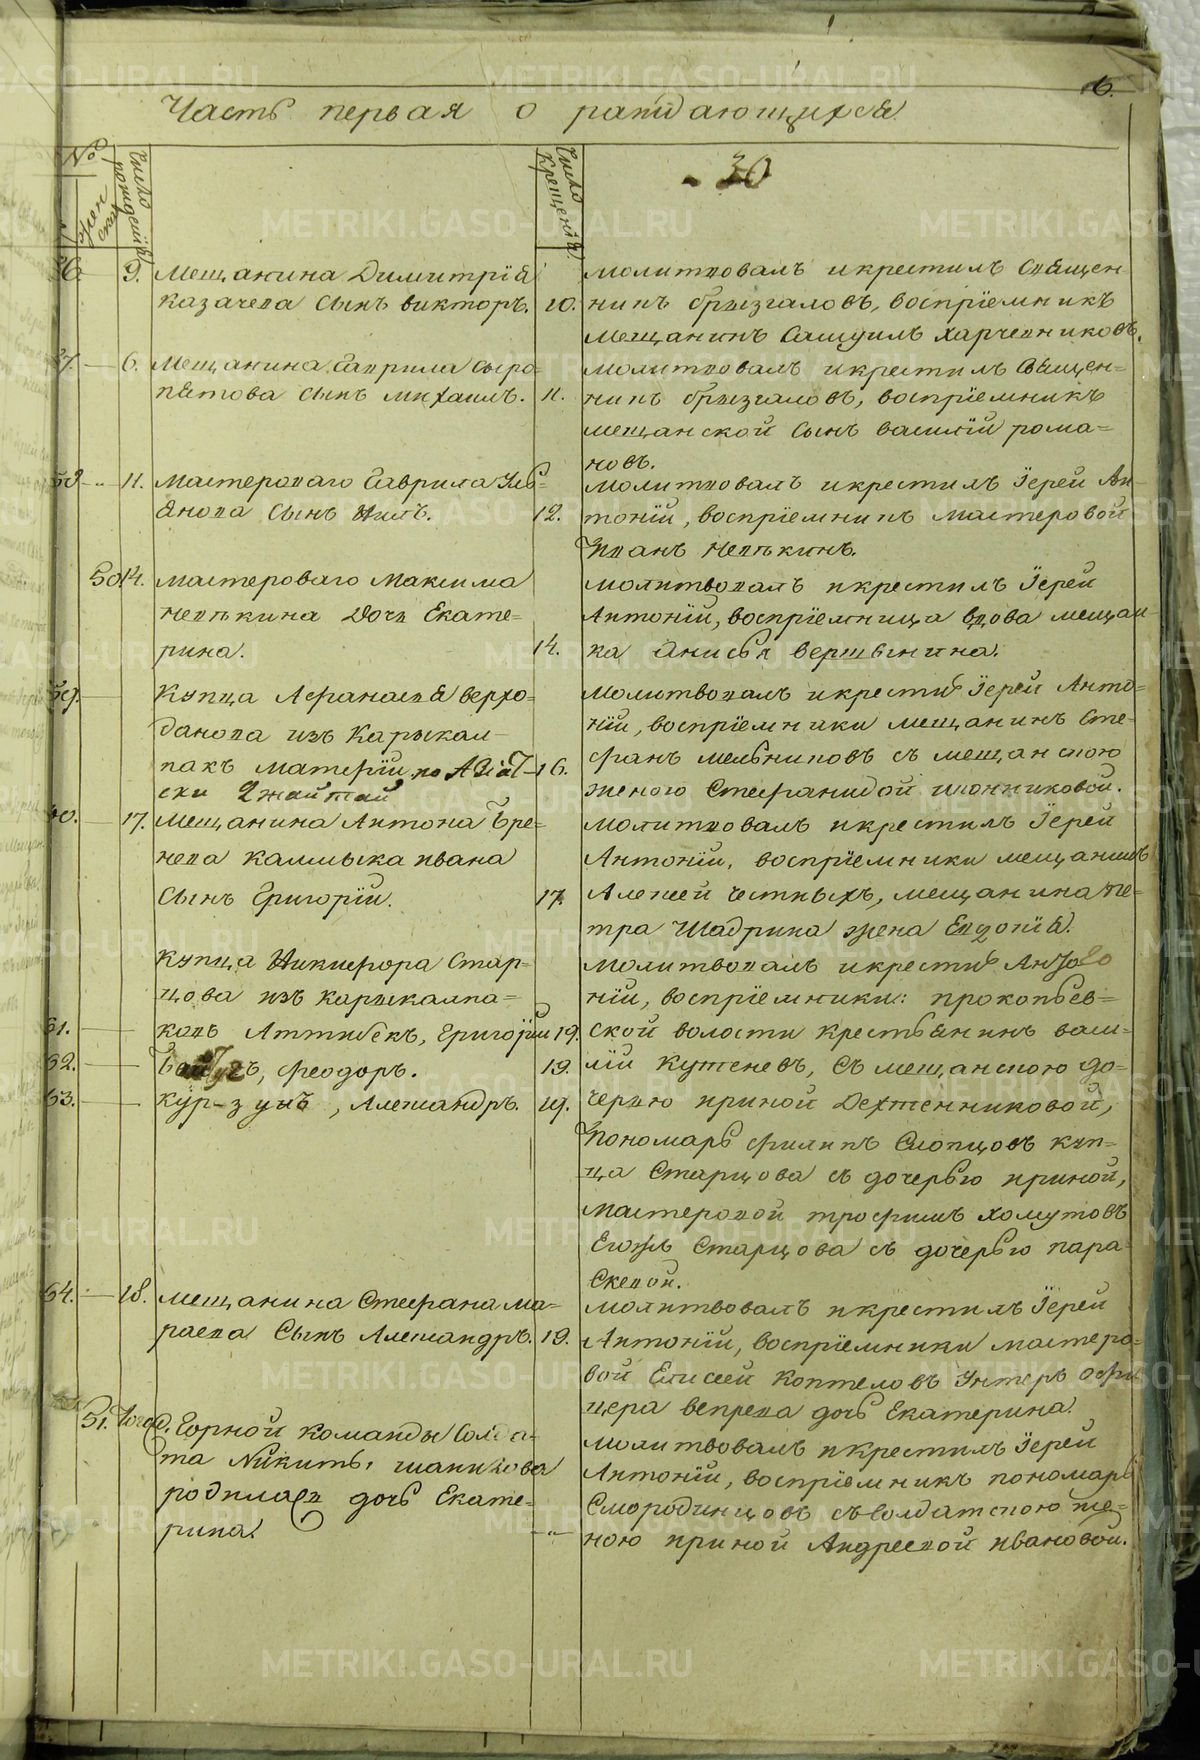 Часть первая о раждающихся
30
№
Число рожденія
женска
Число крещенія
56. 9. Мещанина Димитрія
Казачева сынъ викторъ. 10.
молитвовалъ икрестилъ Священ-
никъ брызгаловъ, воспріемникъ
мещанинъ Самуилъ харчевниковъ.
57. 6. Мещанина Гаврила Сыро-
пятова сынъ михаилъ. 11.
молитвовалъ икрестилъ Священ=
никъ брызгаловъ, воспріемникъ
мещанской сынъ василій рома=
новъ.
58 11. мастероваго Гаврила
сынъ Нилъ. 12.
молитвовалъ икрестилъ Іерей Ан-
тоній, воспріемникъ мастеровой
Иванъ невькинъ.
50. 14. мастероваго Максима
невькина дочь Екате=
рина. 14.
молитвовалъ икрестилъ Іерей
Антоній, воспріемница вдова мещан-
ка анисья вершинина.
59. Купца Афанасія верхо-
данова изъ Каракал-
пакъ матерію по Азіат-
ски Джайтай 16.
молитвовалъ икрестилъ Іерей Анто=
ній, воспріемники мещанинъ Сте-
фанъ мельниковъ съ мещанскою
женою Стефанидой иконниковой.
60. 17. мещанина Антона Бре=
нева калмыка ивана
сынъ Григорій. 17.
молитвовалъ икрестилъ Іерей
Антоній, воспріемники мещанинъ
Алексей Честныхъ, мещанина Пе-
тра Шадрина жена Евдокія.
Купца Никифора Стар-
цова изъ каракалпа=
61. ковъ Аттибекъ, Григорій 19.
62. феодоръ. 19.
63. Кур-зунъ, Александръ. 19.
молитвовалъ икрестилъ Анто
ній, воспріемники: прокопьев=
ской волости крестьянинъ васи-
лій Кутеневъ, съ мещанскою до-
черью ириной Дехтенниковой,
Пономарь филипъ Слопцовъ куп=
ца Старцова съ дочерью ириной,
мастеровой трофимъ холмутовъ
Егожъ Старцова съ дочерью пара
скевой.
64. 18. мещанина Стефана ма-
раева сынъ Александръ. 19.
молитвовалъ икрестилъ Іерей
Антоній, воспріемники мастеро-
вой Елисей Коптеловъ Унтеръ офи
цера вепрева дочь Екатерина.
51. Тогож. Горной команды Солда-
та Никиты шапикова
родилась дочь Екате-
рина.
молитвовалъ икрестилъ Іерей
Антоній, воспріемникъ пономарь
Смородинцовъ съ солдатскою же=
ною ириной Андреевой ивановой.
METRIKI.GASO-URAL.RU